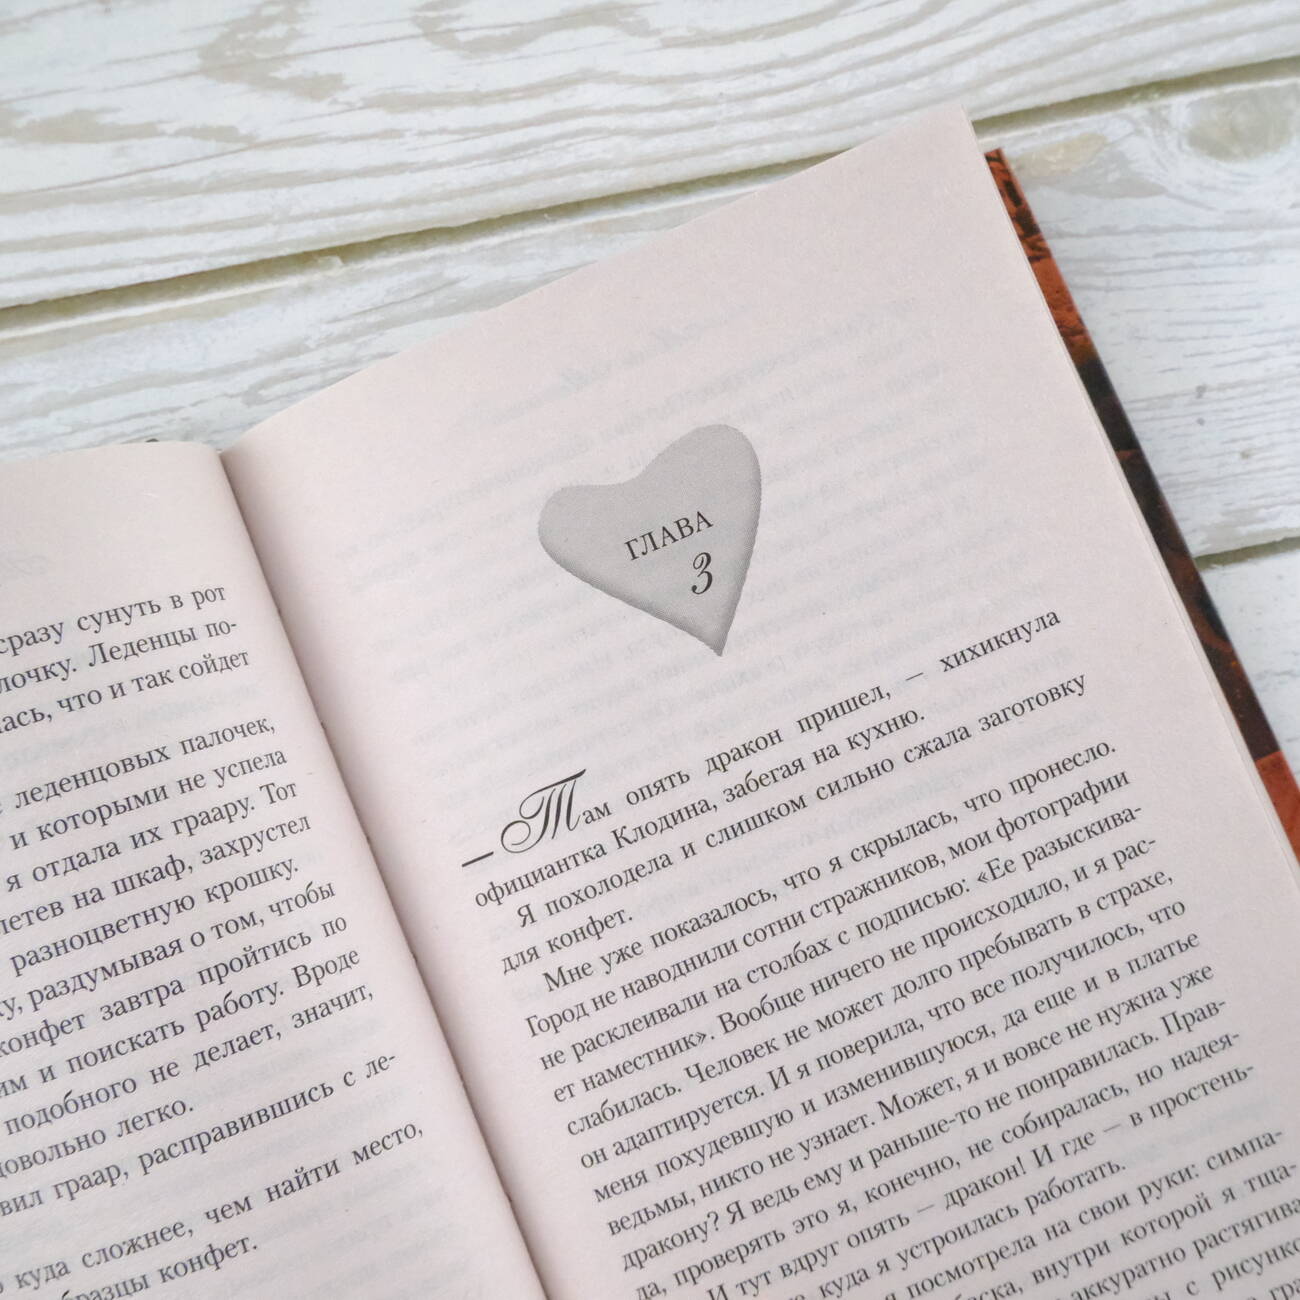 сразу сунуть в рот
лочку. Леденцы по-
лась, что и так сойдет
леденцовых палочек,
и которыми не успела
я отдала их граару. Тот
летев на шкаф, захрустел
разноцветную крошку.
ку, раздумывая о том, чтобы
конфет завтра пройтись по
им и поискать работу. Вроде
подобного не делает, значит,
довольно легко.
вил граар, расправившись с ле-
куда сложнее, чем найти место,
образцы конфет.
ГЛАВА
3
— Там опять дракон пришел, — хихикнула
официантка Клодина, забегая на кухню.
Я похолодела и слишком сильно сжала заготовку
для конфет.
Мне уже показалось, что я скрылась, что пронесло.
Город не наводнили сотни стражников, мои фотографии
не расклеивали на столбах с подписью: «Ее разыскива-
ет наместник». Вообще ничего не происходило, и я рас-
слабилась. Человек не может долго пребывать в страхе,
он адаптируется. И я поверила, что все получилось, что
меня похудевшую и изменившуюся, да еще и в платье
ведьмы, никто не узнает. Может, я и вовсе не нужна уже
дракону? Я ведь ему и раньше-то не понравилась. Прав-
да, проверять это я, конечно, не собиралась, но надея-
И тут вдруг опять — дракон! И где — в простень-
куда я устроилась работать.
я посмотрела на свои руки: симпа-
внутри которой я тща-
аккуратно растягива
с рисунко